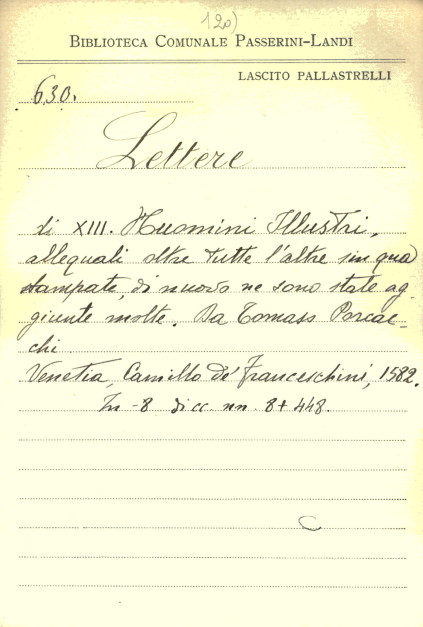 120)
BIBLIOTECA COMUNALE PASSERINI-LANDI
LASCITO PALLASTRELLI
630.
Lettere
di XIII. Huomini Illustri,
allequali oltre tutte l'altre sin quà
stampate, di nuovo ne sono state ag-
giunte molte. Da Tomaso Porcac-
chi
Venetia, Camillo de' Franceschini, 1582.
In -8 di cc. nn. 8 + 448.